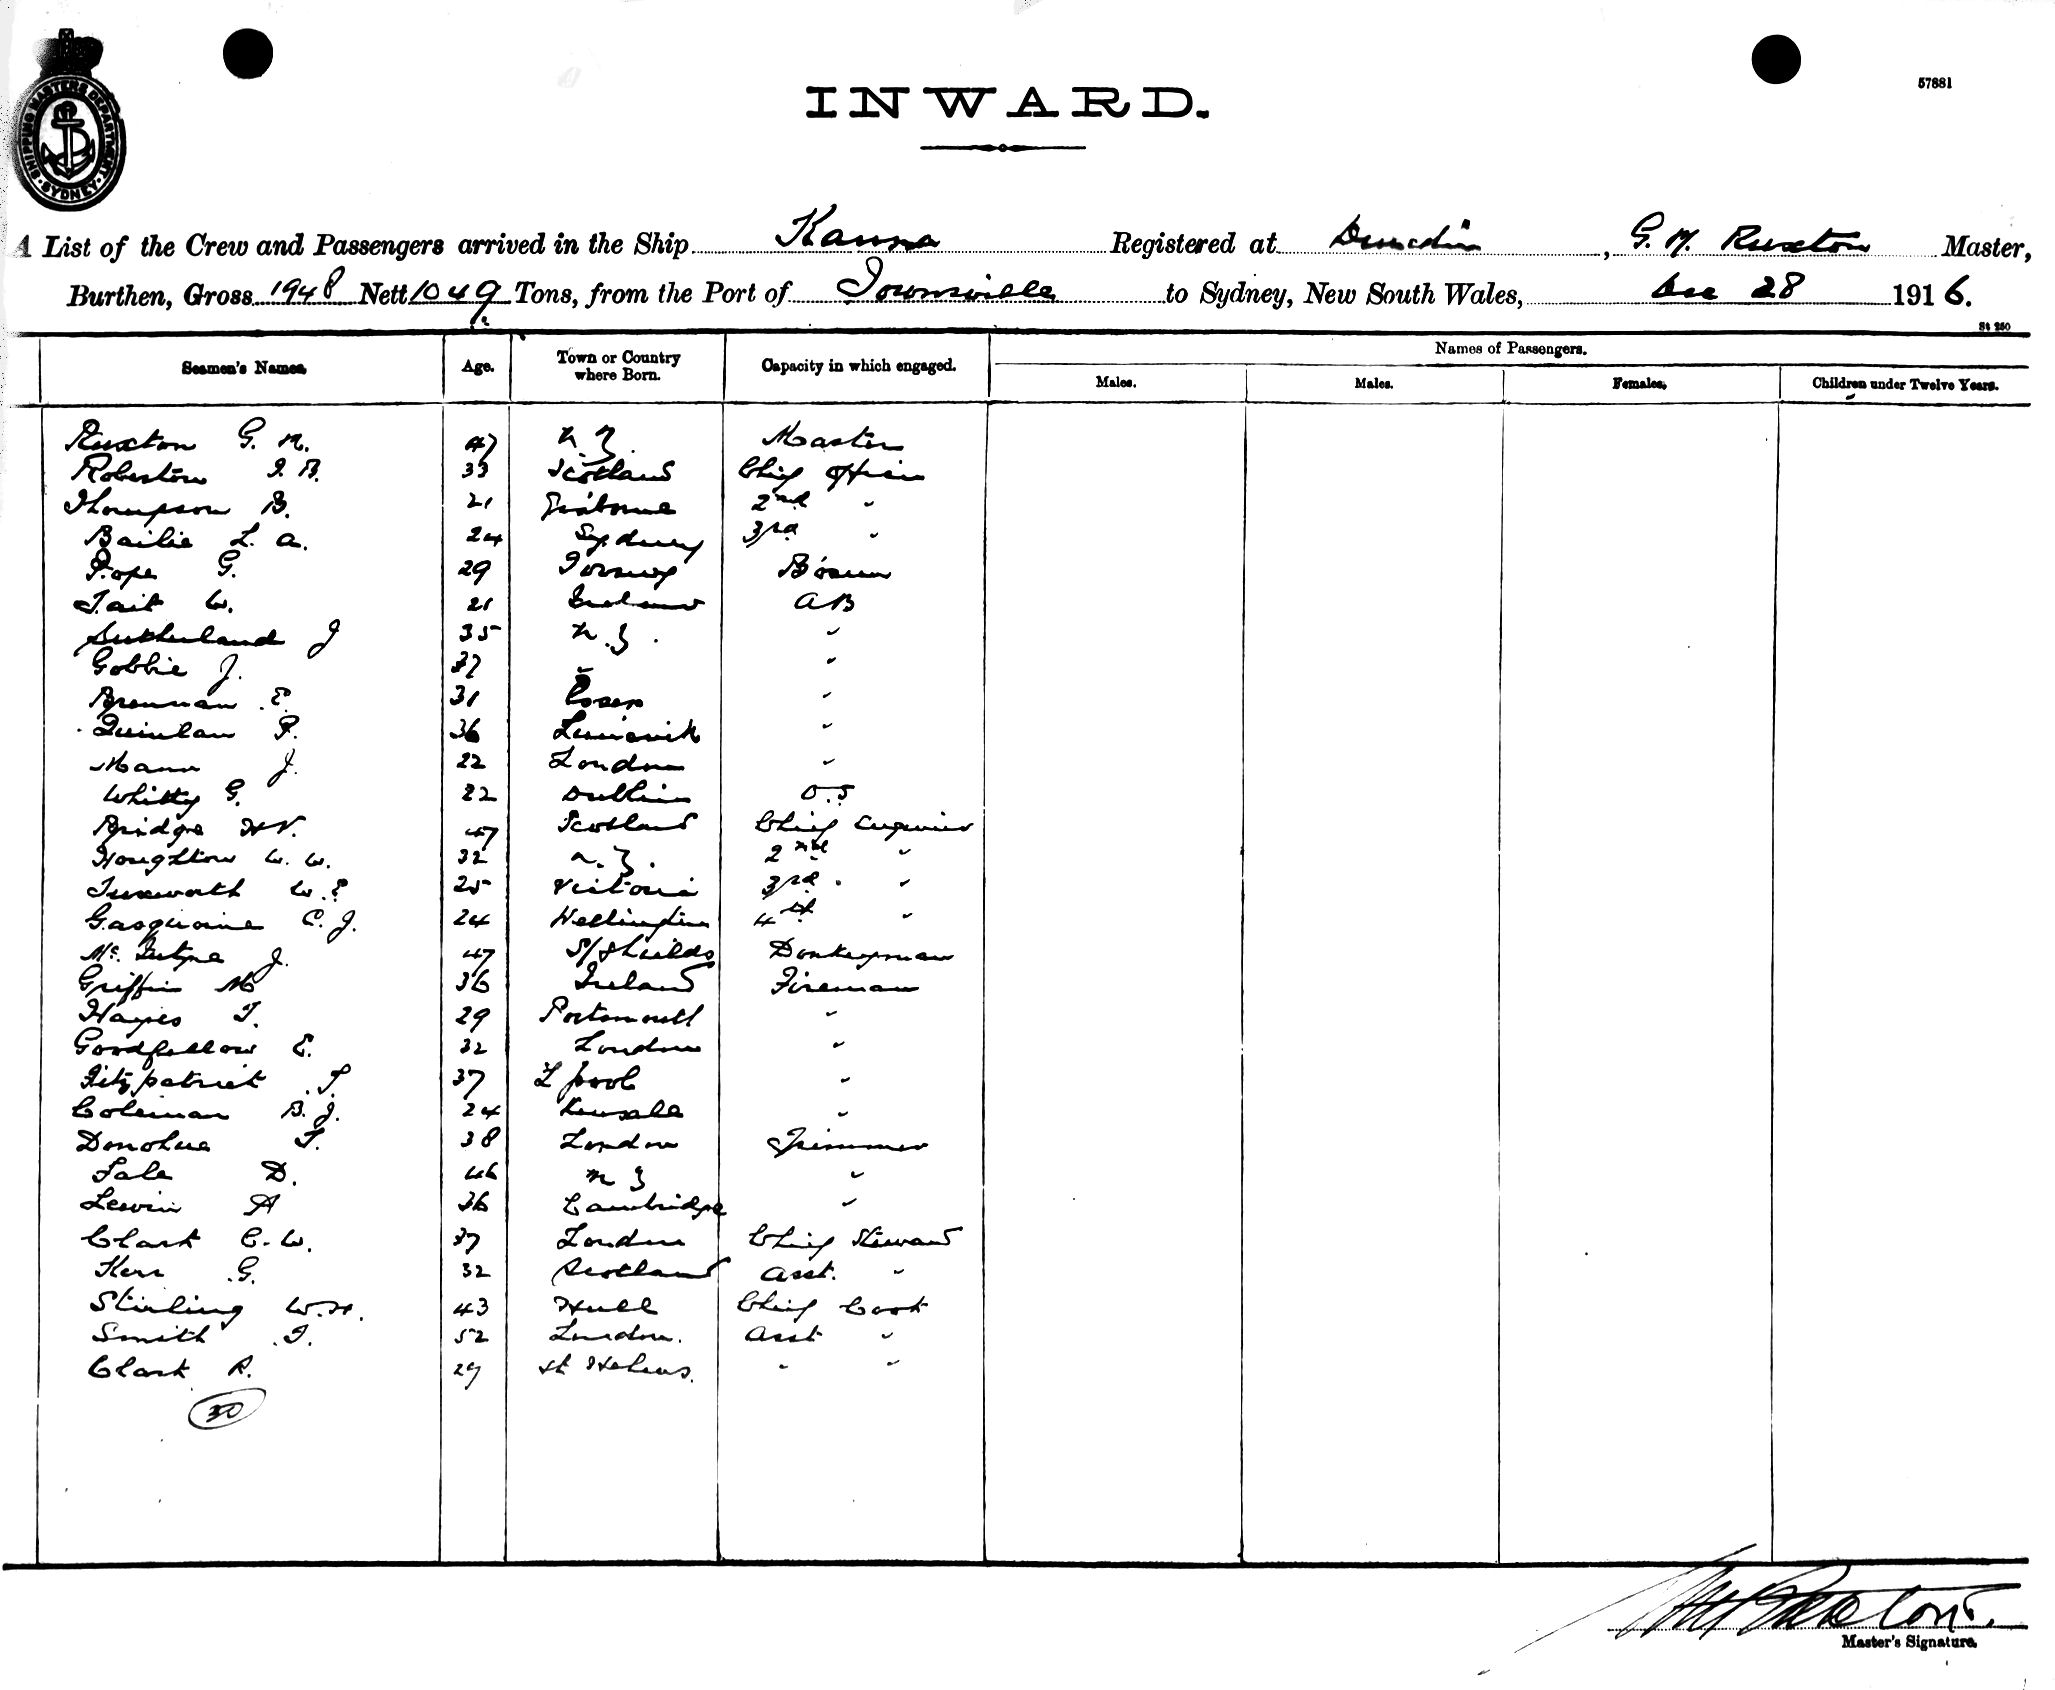 57881
SHIPPING MASTERS DEPARTMENT SYDNEY
INWARD.
A List of the Crew and Passengers arrived in the Ship Kauna Registered at Dunedin, G. M. Ruxton Master,
Burthen, Gross 1948 Nett 1049 Tons, from the Port of Townsville to Sydney, New South Wales, Dec 28 1916.
St 250
Seamen's Names. Age. Town or Country where Born. Capacity in which engaged. Names of Passengers.
Males. Males. Females. Children under Twelve Years.
Ruxton G. M. 47 N.Z. Master
Robertson J. B. 33 Scotland Chief Officer
Thompson B. 21 Gisborne 2nd "
Bailie L. A. 24 Sydney 3rd "
Pope G. 29 Torquay Bosun
Tait W. 21 Ireland AB
Sutherland J 35 N.Z. "
Gobbie J. 37 " "
Brennan E. 31 Essex "
Quinlan P. 36 Limerick "
Mann J. 22 London "
Whitty G. 22 Dublin O.S
Bridge 47 Scotland Chief Engineer
Houghton W. W. 32 N.Z. 2nd "
Tuxworth W. E 25 Victoria 3rd "
Gasquoine C. J. 24 Wellington 4th "
McIntyre J. 47 S/Shields Donkeyman
Griffin M 36 Ireland Fireman
Hayes T. 29 Portsmouth "
Goodfellow E. 32 London "
Fitzpatrick T. 37 L'pool "
Coleman B. J. 24 Kinsale "
Donohue T. 38 London Trimmer
Tale D. 46 N Z "
Lewin A 36 Cambridge "
Clark C. W. 37 London Chief Steward
Kerr G. 32 Scotland Asst. "
Stirling W. H. 43 Hull Chief Cook
Smith J. 52 London. Asst "
Clark R. 29 St Helens. " "
30
Master's Signature.